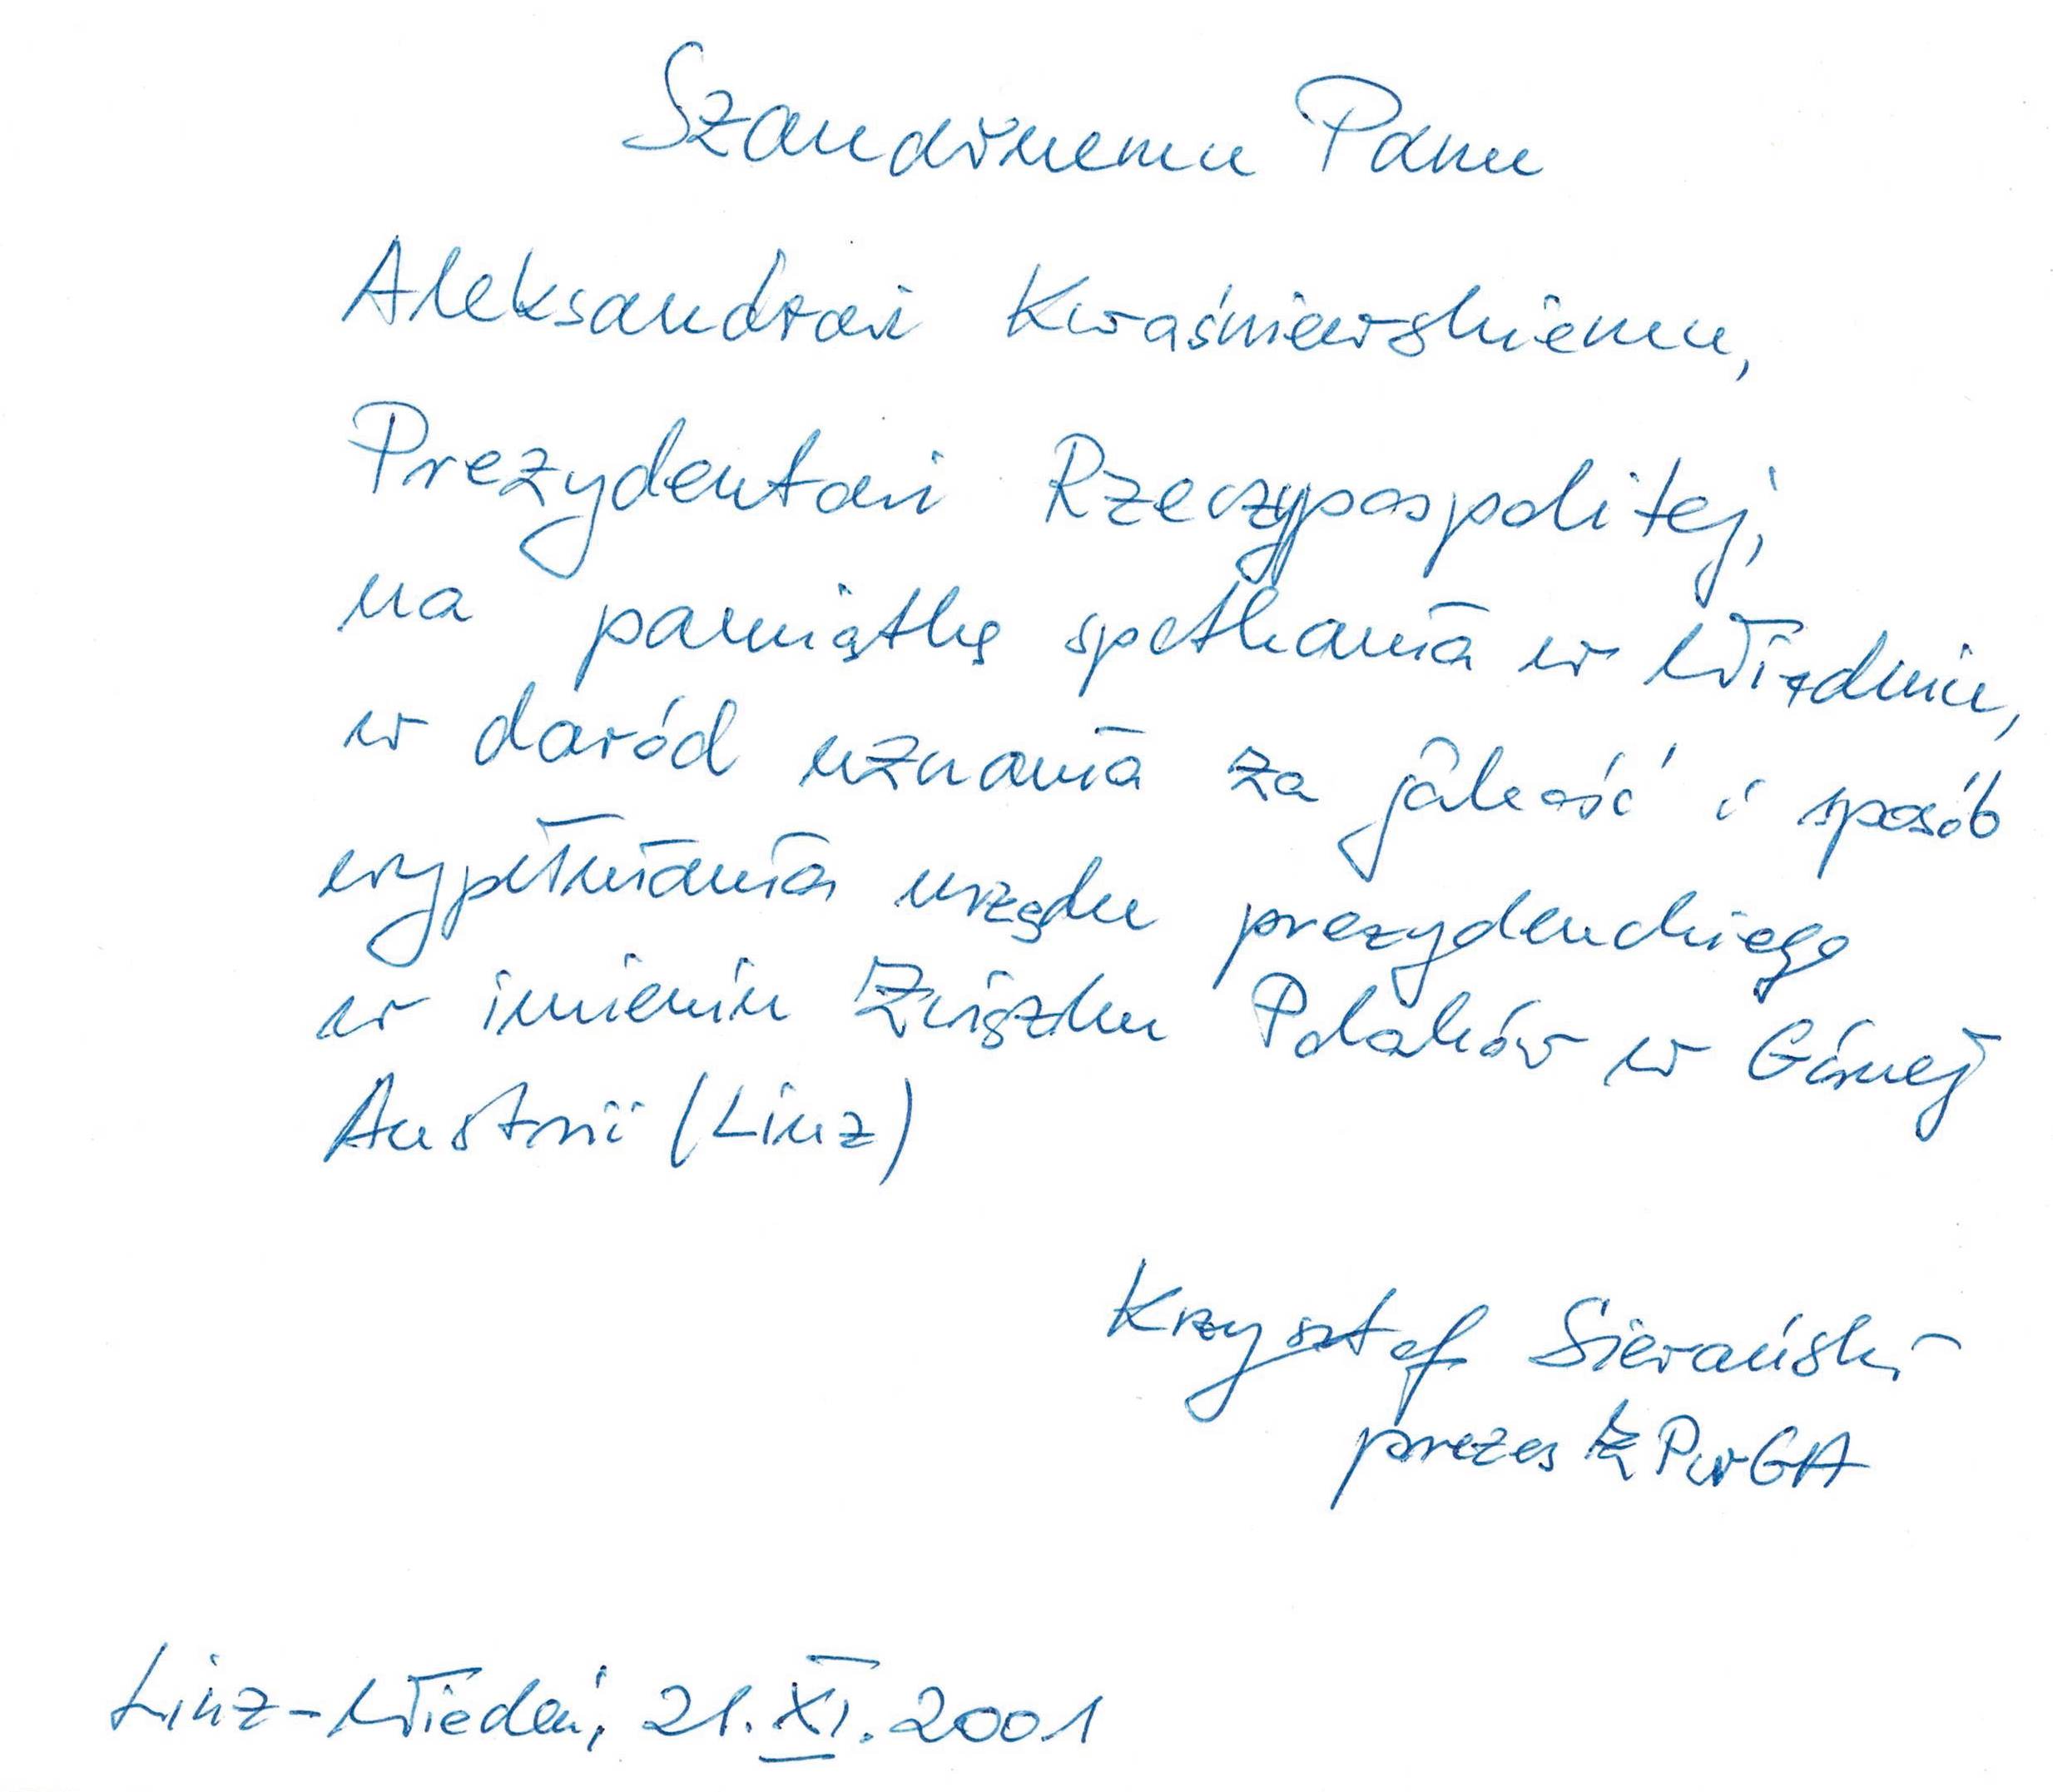 Szanownemu Panu
Aleksandrowi Kwaśniewskiemu,
Prezydentowi Rzeczypospolitej,
na pamiątkę spotkania w Wiedniu,
w dowód uznania za jakość i sposób
wypełniania urzędu prezydenckiego
w imieniu Związku Polaków w Górnej
Austrii (Linz)
Krzysztof Sierański
prezes ZPwGA
Linz-Wiedeń, 21.XI.2001